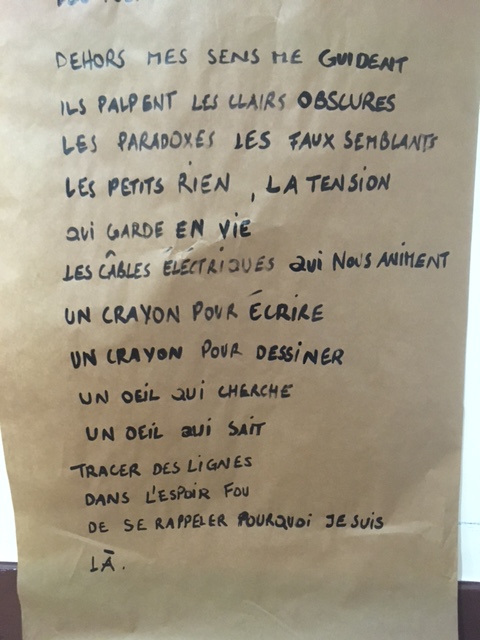 DEHORS MES SENS ME GUIDENT
ILS PALPENT LES CLAIRS OBSCURES
LES PARADOXES LES FAUX SEMBLANTS
LES PETITS RIEN , LA TENSION
QUI GARDE EN VIE
LES CÂBLES ÉLÉCTRIQUES QUI NOUS ANIMENT
UN CRAYON POUR ÉCRIRE
UN CRAYON POUR DESSINER
UN OEIL QUI CHERCHE
UN OEIL QUI SAIT
TRACER DES LIGNES
DANS L'ESPOIR FOU
DE SE RAPPELER POURQUOI JE SUIS
LÀ.